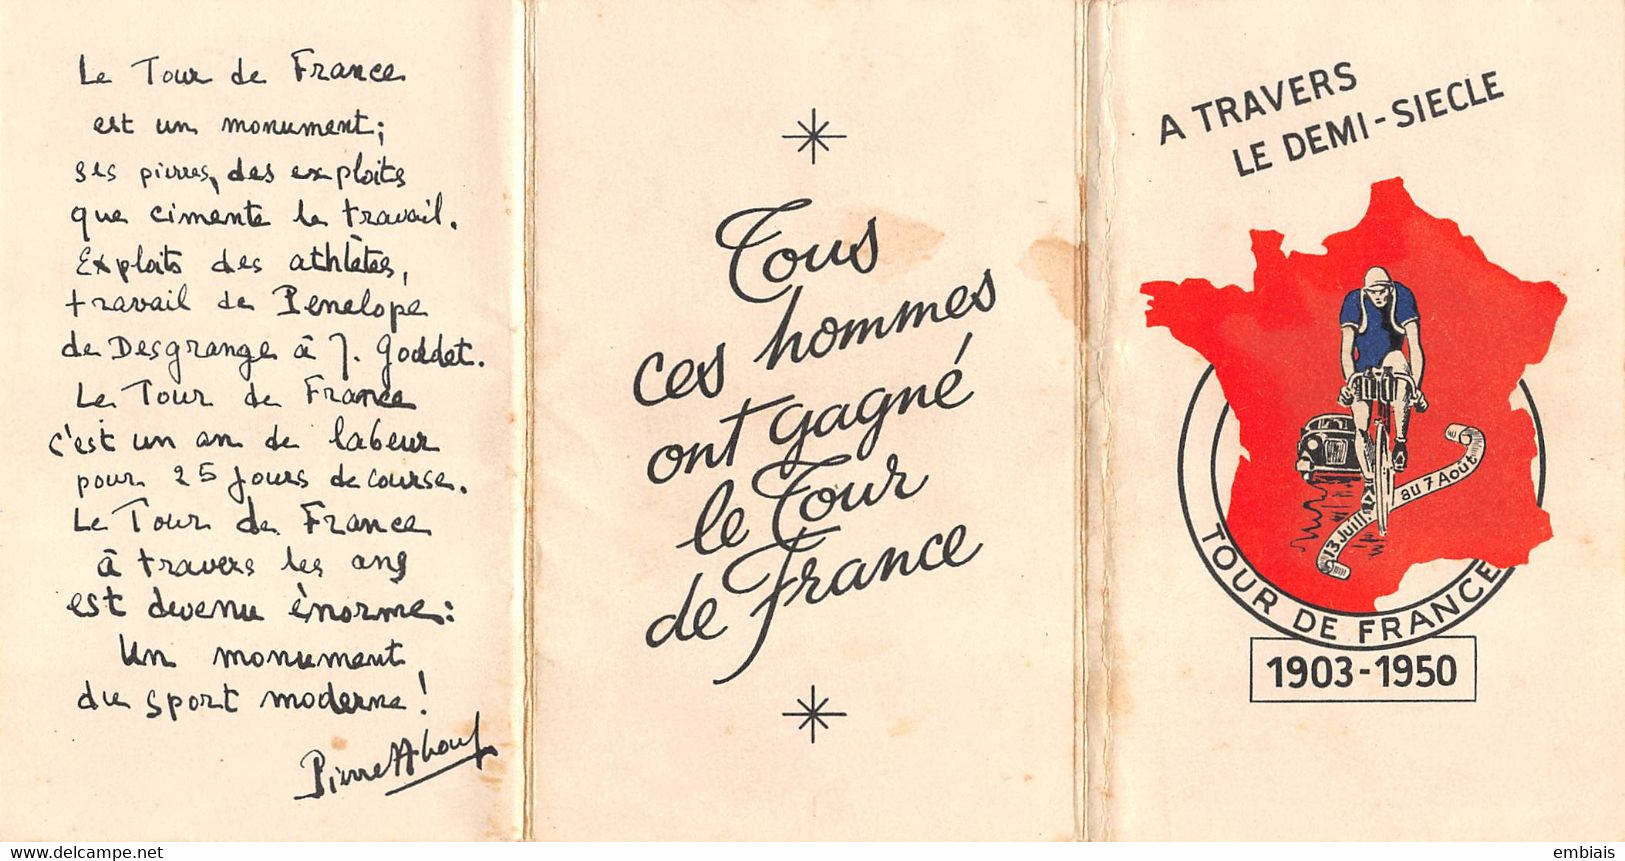 Le Tour de France
est un monument;
ses pierres, des exploits
que cimente le travail.
Exploits des athlètes,
travail de Penelope
de Desgrange à J. Goddet.
Le Tour de France
c'est un an de labeur
pour 25 jours de course.
Le Tour de France
à travers les ans
est devenu énorme:
Un monument
du sport moderne!
Pierre About
Tous
ces hommes
ont gagné
le Tour
de France
A TRAVERS
LE DEMI-SIECLE
13 Juill. au 7 Août
TOUR DE FRANCE
1903-1950
delcampe.net
embiais